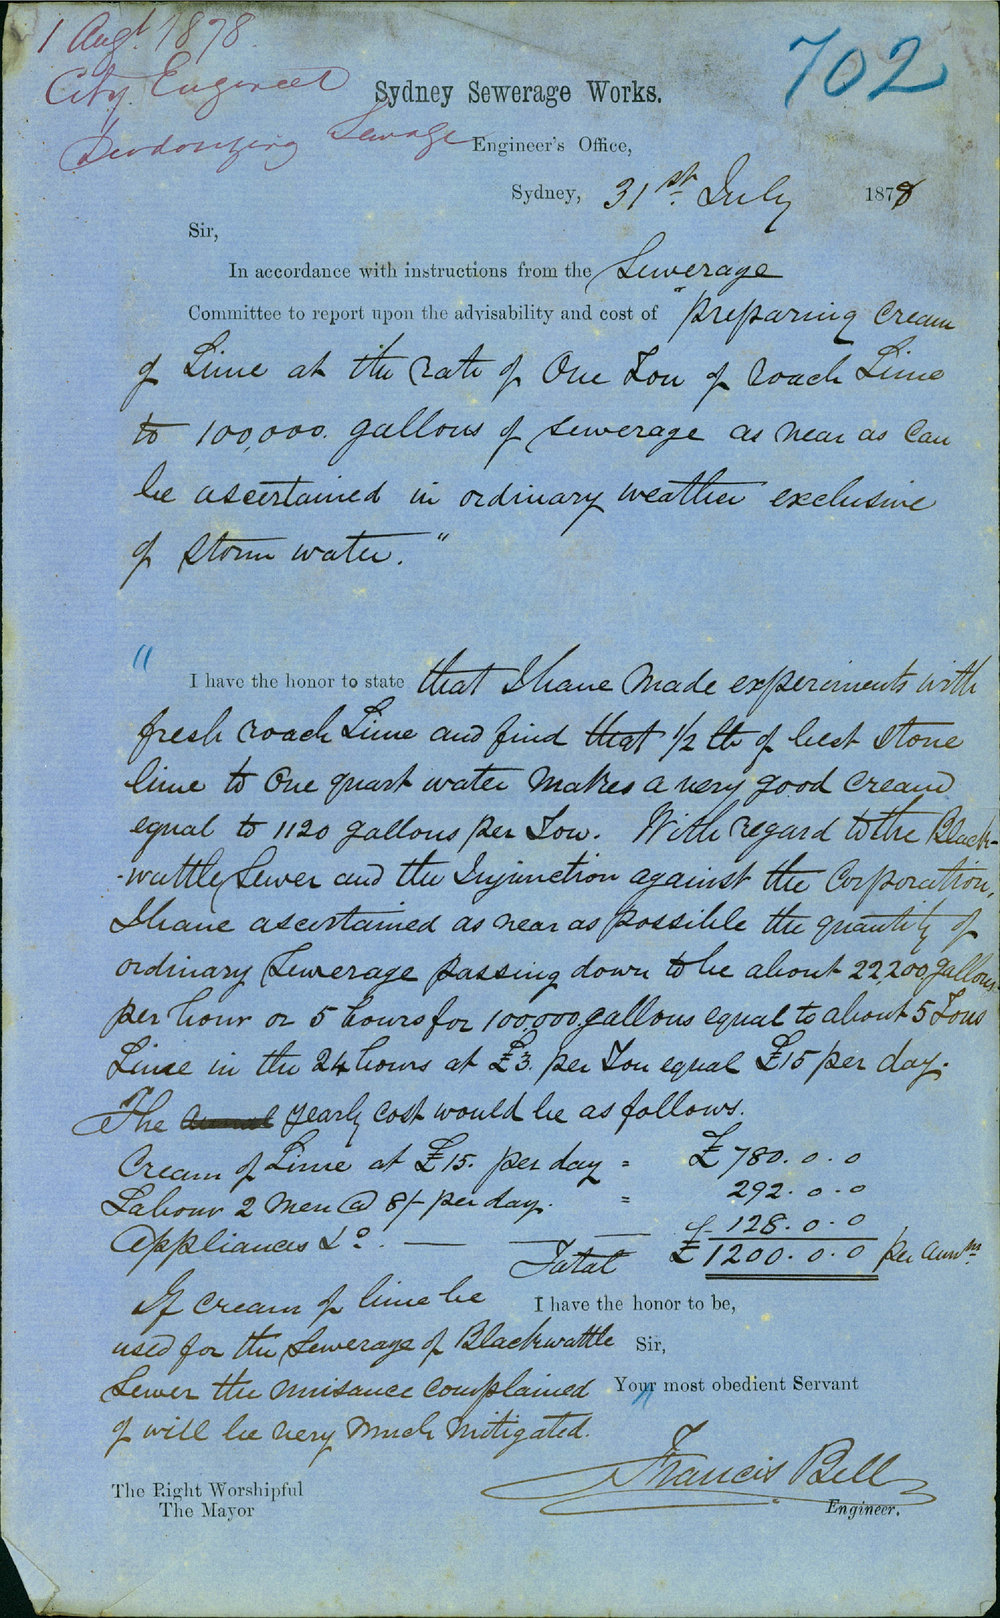 1 Augt. 1878.
702
City Engineer
Sydney Sewerage Works.
Deodorizing Sewage
Engineer's Office,
Sydney, 31st. July 1878
Sir,
In accordance with instructions from the Sewerage
Committee to report upon the advisability and cost of "preparing cream
of Lime at the rate of One Ton of roach Lime
to 100,000. gallons of sewerage as near as can
be ascertained in ordinary weather exclusive
of storm water."
" I have the honor to state that I have made experiments with
fresh roach Lime and find that 1/2 lb of best stone
lime to One quart water makes a very good cream
equal to 1120 gallons per Ton. With regard to the Black-
-wattle Sewer and the Injunction against the Corporation,
I have ascertained as near as possible the quantity of
ordinary Sewerage passing down to be about 22,200 gallons
per hour or 5 hours for 100,000 gallons equal to about 5 Tons
Lime in the 24 hours at £3. per Ton equal £15 per day.
The annual yearly cost would be as follows.
Cream of Lime at £15. per day = £780.0.0
Labour 2 men @ 8/- per day. = 292.0.0
Appliances &c. — — — £ 128.0.0
Total £1200.0.0 per annm
If cream of lime be
used for the Sewerage of Blackwattle
Sewer the nuisance complained
of will be very much mitigated.
I have the honor to be,
Sir,
Your most obedient Servant
Francis Bell
Engineer.
The Right Worshipful
The Mayor